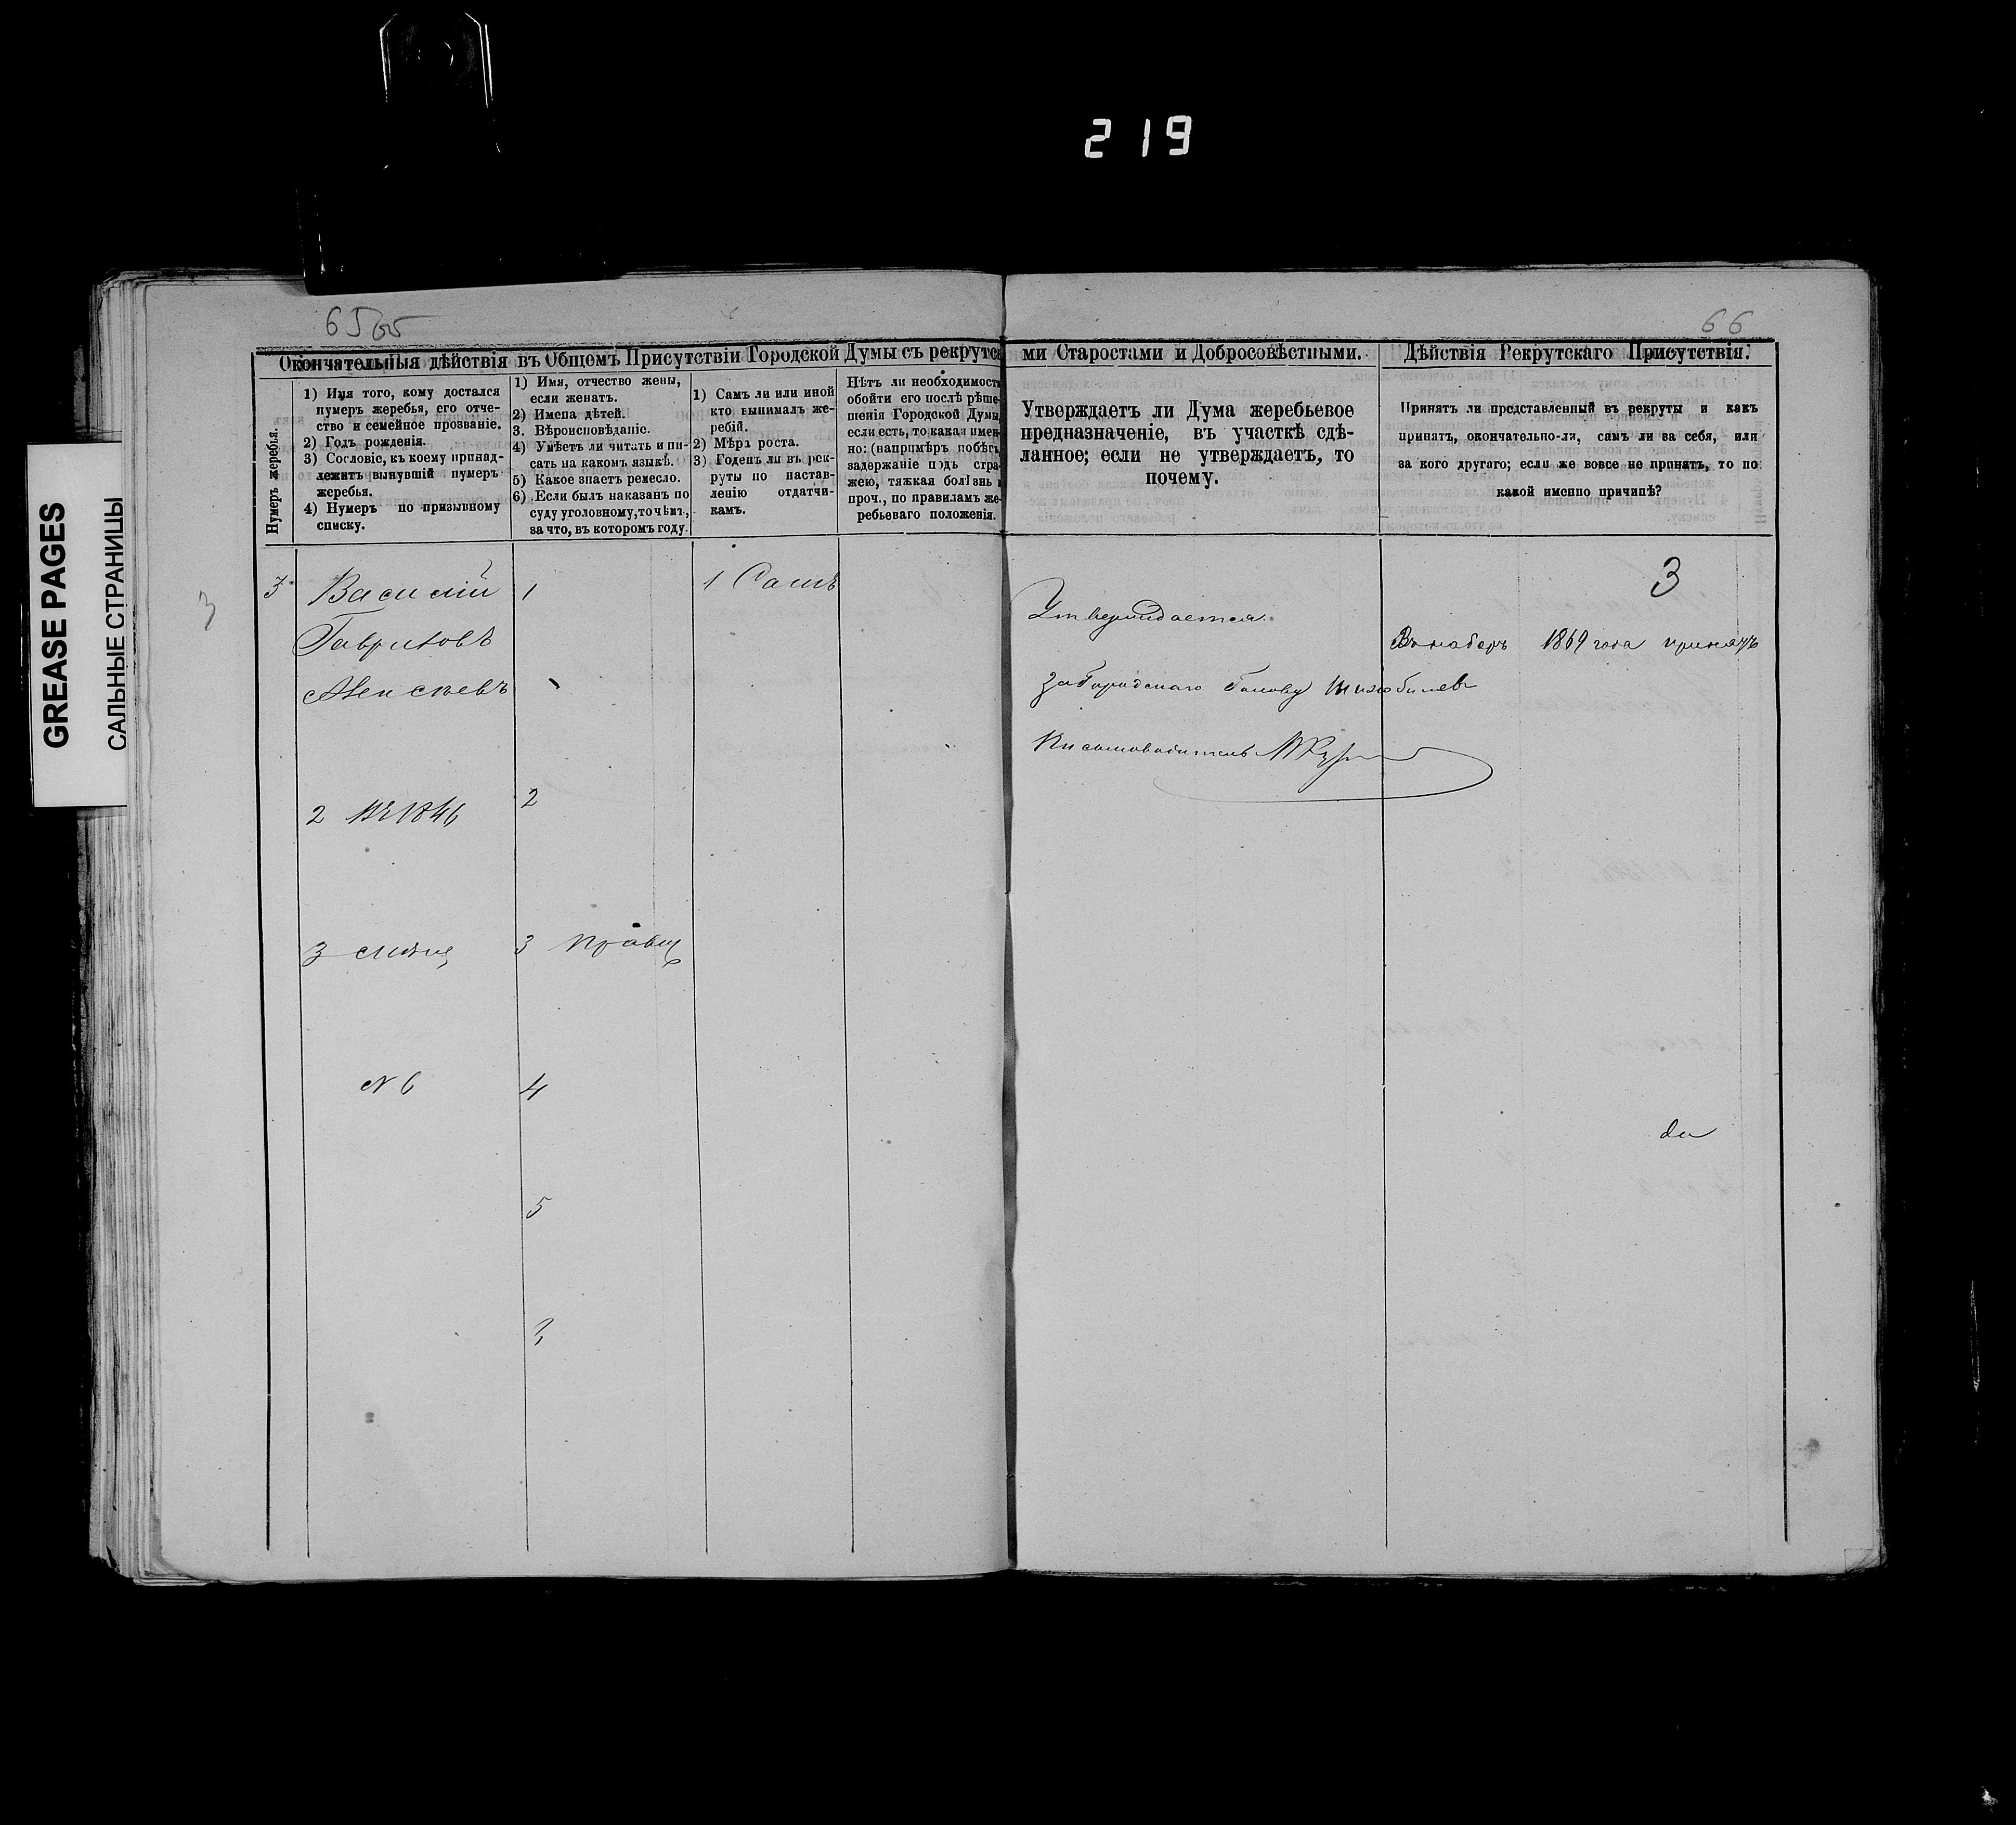 219
GREASE PAGES
САЛЬНЫЕ СТРАНИЦЫ
65 65
66
Окончательныя дѣйствія въ Общемъ Присутствіи Городской Думы съ рекрутскими Старостами и Добросовѣстными.
Дѣйствія Рекрутскаго Присутствія.
Нумеръ жеребья.
1) Имя того, кому достался
нумеръ жеребья, его отче-
ство и семейное прозваніе.
2) Годъ рожденія.
3) Сословіе, къ коему принад-
лежитъ вынувшій нумеръ
жеребья.
4) Нумеръ по призывному
списку.
1) Имя, отчество жены,
если женатъ.
2) Имена дѣтей.
3. Вѣроисповѣданіе.
4) Умѣетъ ли читать и пи-
сать на какомъ языкѣ.
5) Какое знаетъ ремесло.
6) Если былъ наказанъ по
суду уголовному, то чѣмъ,
за что, въ которомъ году.
1) Самъ ли или иной
кто вынималъ же-
ребій.
2) Мѣра роста.
3) Годенъ ли въ рек-
руты по настав-
ленію отдатчи-
камъ.
Нѣтъ ли необходимости
обойти его послѣ рѣше-
шенія Городской Думы,
если есть, то какая имен-
но: (напримѣръ побѣгъ,
задержаніе подъ стра-
жею, тяжкая болѣзнь и
проч., по правиламъ же-
ребьеваго положенія.
Утверждаетъ ли Дума жеребьевое
предназначеніе, въ участкѣ сдѣ-
ланное; если не утверждаетъ, то
почему.
Принятъ ли представленный въ рекруты и какъ
принятъ, окончательно-ли, самъ ли за себя, или
за кого другаго; если же вовсе не принятъ, то по
какой именно причинѣ?
3
3
Василій
Гавриловъ
Алексѣевъ
2 1846
3
№ 6
1
2
3 Правщ
4
5
1 Самъ
Утверждается.
за Городскаго Голову
Письмоводитель
3
Въ наборъ 1869 года принятъ